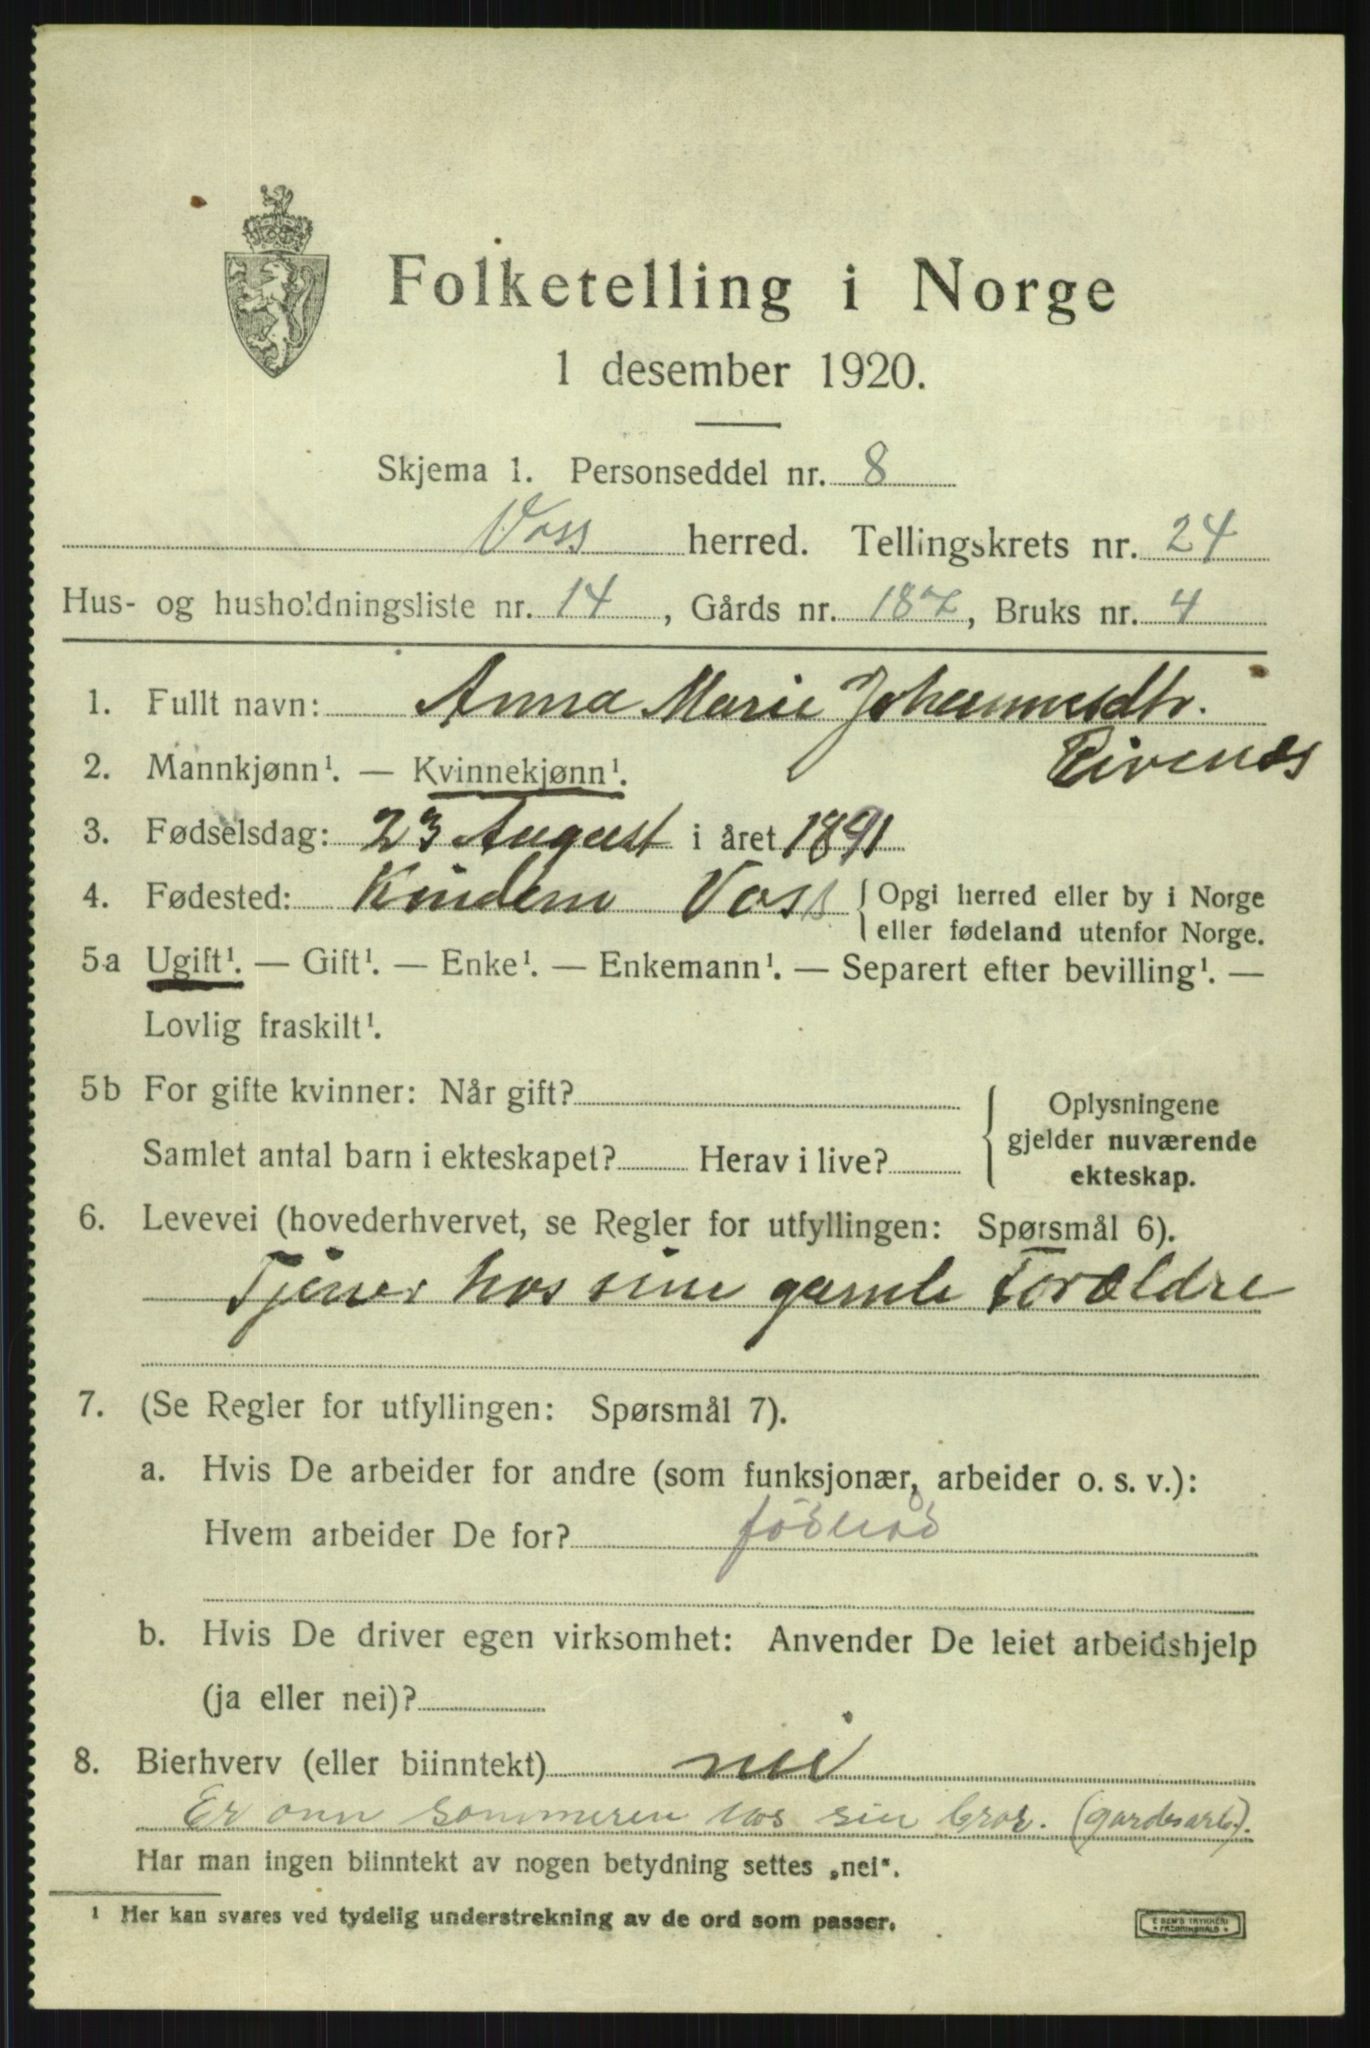 Folketelling i Norge
1 desember 1920.
Skjema 1. Personseddel nr. 8
Voss herred. Tellingskrets nr. 24
Hus- og husholdningsliste nr. 14, Gårds nr. 187, Bruks nr. 4
1. Fullt navn: Anna Marie Johannesdtr.
Eivenes
2. Mannkjønn¹. — Kvinnekjønn¹.
3. Fødselsdag: 23 August i året 1891
4. Fødested: Kindem Voss { Opgi herred eller by i Norge
eller fødeland utenfor Norge.
5a Ugift¹. — Gift¹. — Enke¹. — Enkemann¹. — Separert efter bevilling¹. —
Lovlig fraskilt¹.
5b For gifte kvinner: Når gift?
Samlet antal barn i ekteskapet? Herav i live?
Oplysningene
gjelder nuværende
ekteskap.
6. Levevei (hovederhvervet, se Regler for utfyllingen: Spørsmål 6).
Tjener hos sine gamle Forældre
7. (Se Regler for utfyllingen: Spørsmål 7).
a. Hvis De arbeider for andre (som funksjonær, arbeider o. s. v.):
Hvem arbeider De for?
b. Hvis De driver egen virksomhet: Anvender De leiet arbeidshjelp
(ja eller nei)?
8. Bierhverv (eller biinntekt) nei
Er onn sommeren hos sin bror. (gardsarb).
Har man ingen biinntekt av nogen betydning settes „nei“.
¹ Her kan svares ved tydelig understrekning av de ord som passer.
E. SEM'S TRYKKERI
FREDRIKSHALD